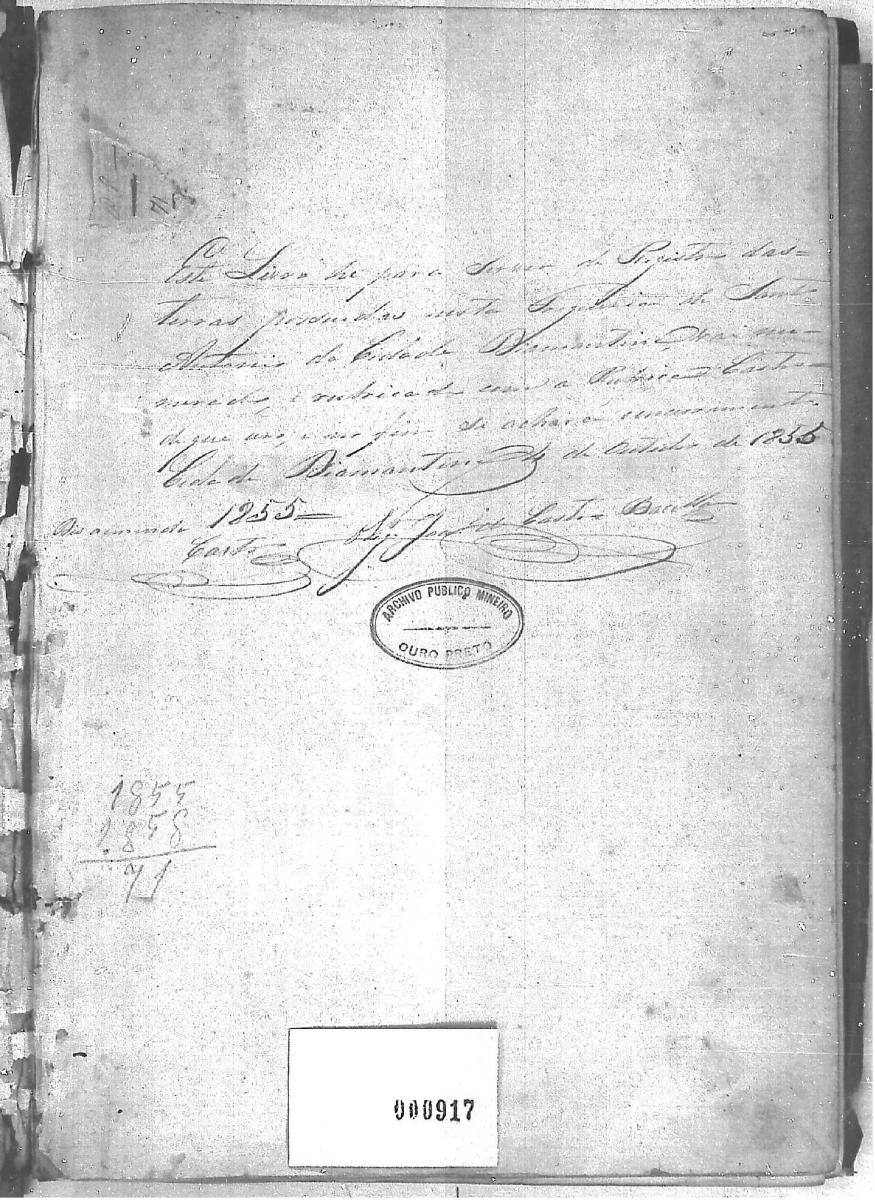 Este Livro he para servir de Registro das=
terras possuidas nesta Freguesia de Santo
Antonio da Cidade Diamantina, vai nu=
merado, e rubricado com a Rubrica Castro
de que uso, e no fim se achará encerramento
Cidade Diamantina 4 de Outubro de 1855
1855=
Castro
de Castro
ARCHIVO PUBLICO MINEIRO
OURO PRETO
1855
1858
71
000917